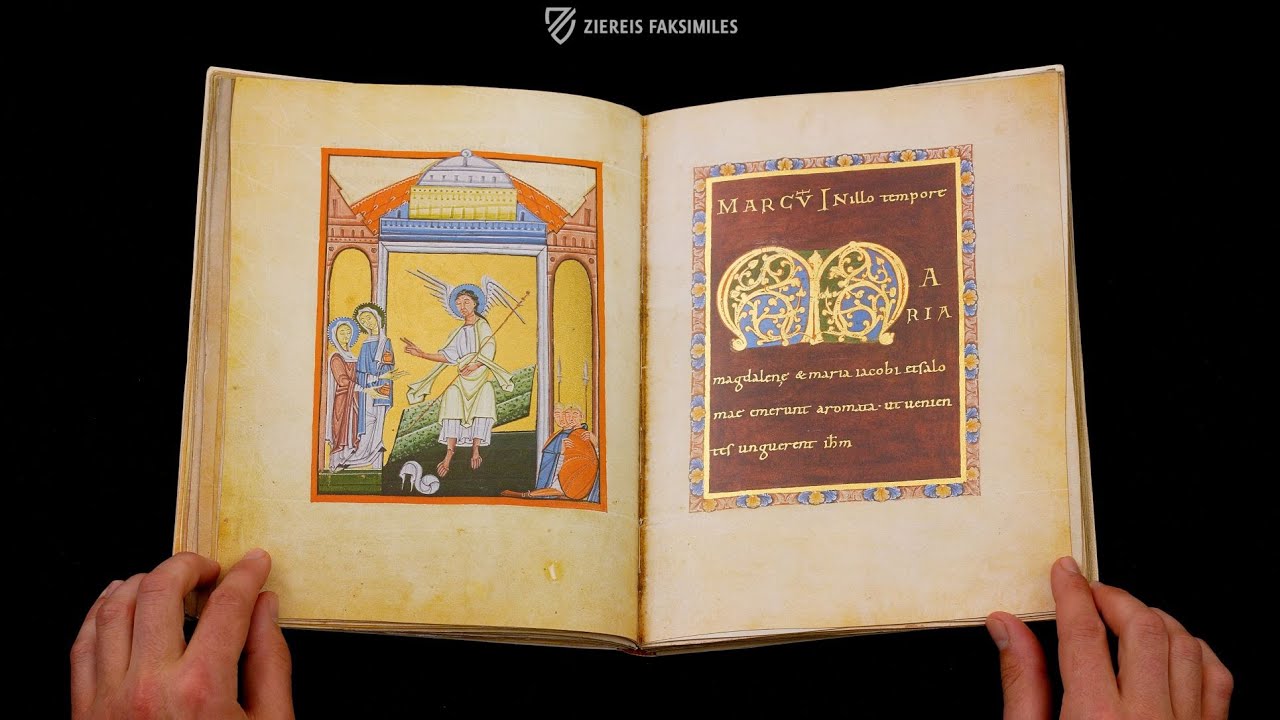 ZIEREIS FAKSIMILES
MARCV̄ INillo tempore
MA
RIA
magdalenę & maria iacobi etsalo
mae emerunt aromata · ut uenien
tes unguerent ih̄m